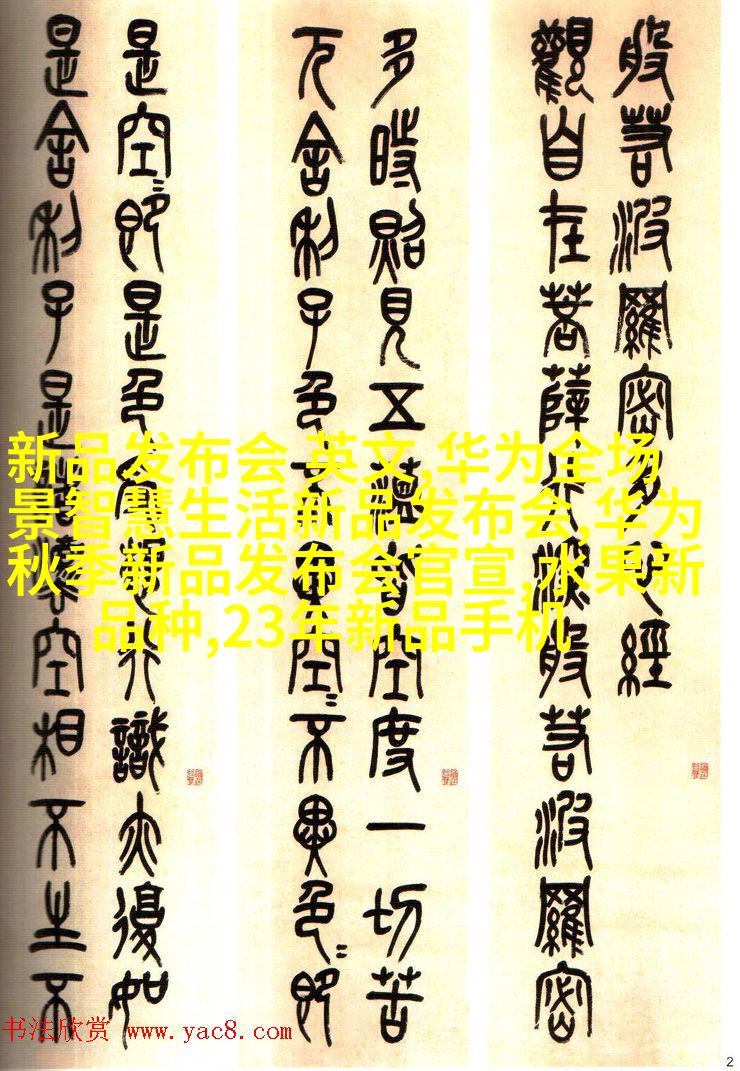 般若波羅密多心經
觀自在菩薩行深般若波羅密
多時照見五蘊皆空度一切苦
厄舍利子色不異空〻不異色〻即
是空〻即是色受想行識亦復如
是舍利子是諸法空相不生不
新品发布会 英文,华为全场
景智慧生活新品发布会,华为
秋季新品发布会官宣,水果新
品种,23年新品手机
书法欣赏 www.yac8.com
2